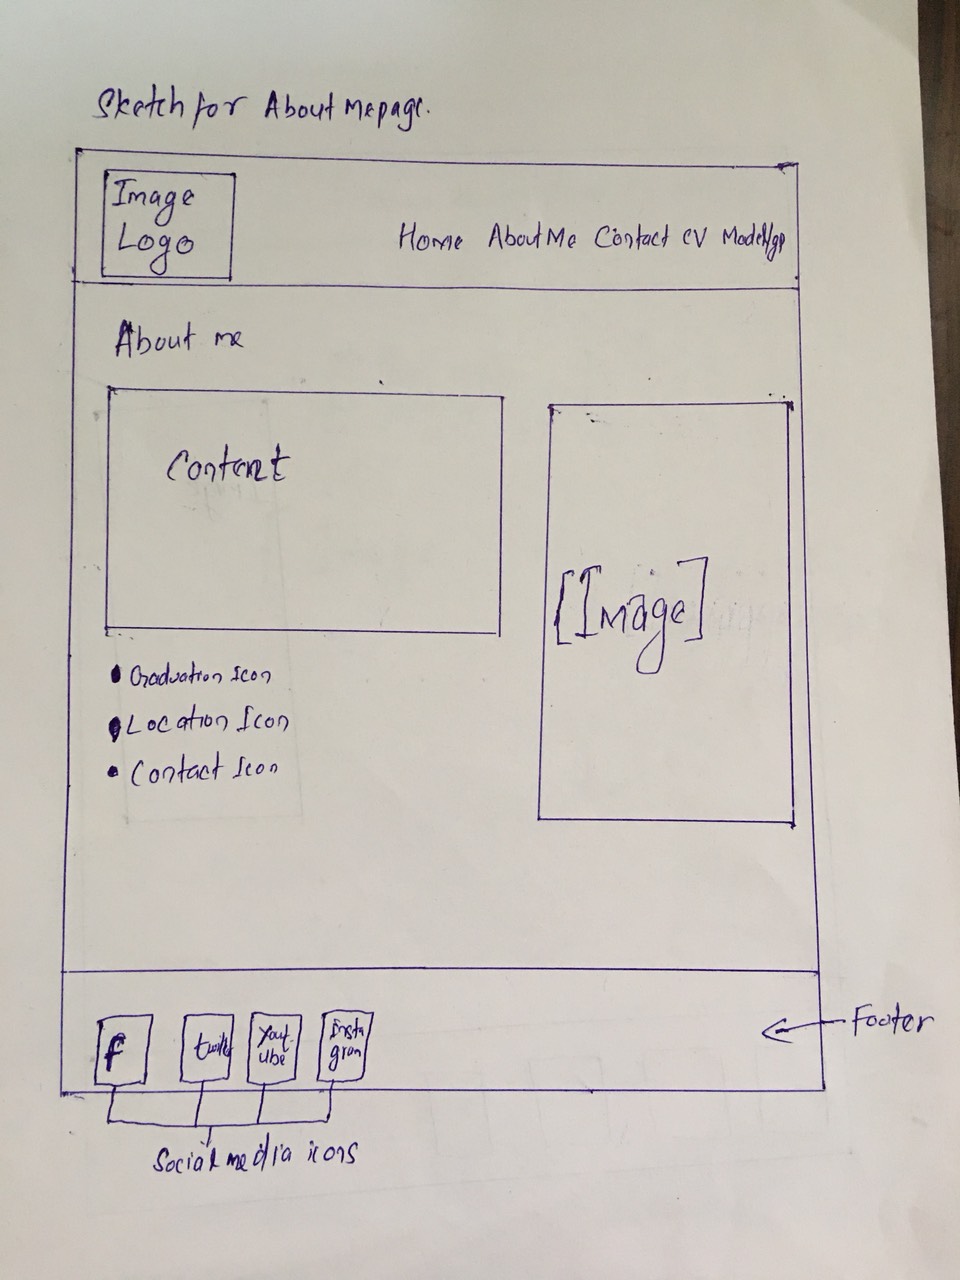 Sketch for About Me page.
Image
Logo
Home About Me Contact CV
About me
Content
[Image]
Graduation Icon
Location Icon
Contact Icon
f
twitter
Yout
ube
Insta
gram
Footer
Social media icons